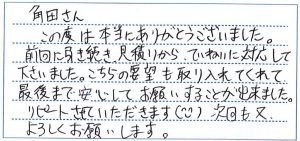 角田さん
この度は本当にありがとうございました。
前回に引き続き、見積りから、ていねいに対応して
下さいました。こちらの要望も取り入れてくれて
最後まで安心してお願いすることが出来ました。
リピートさせていただきます(^^) 次回も又、
よろしくお願いします。